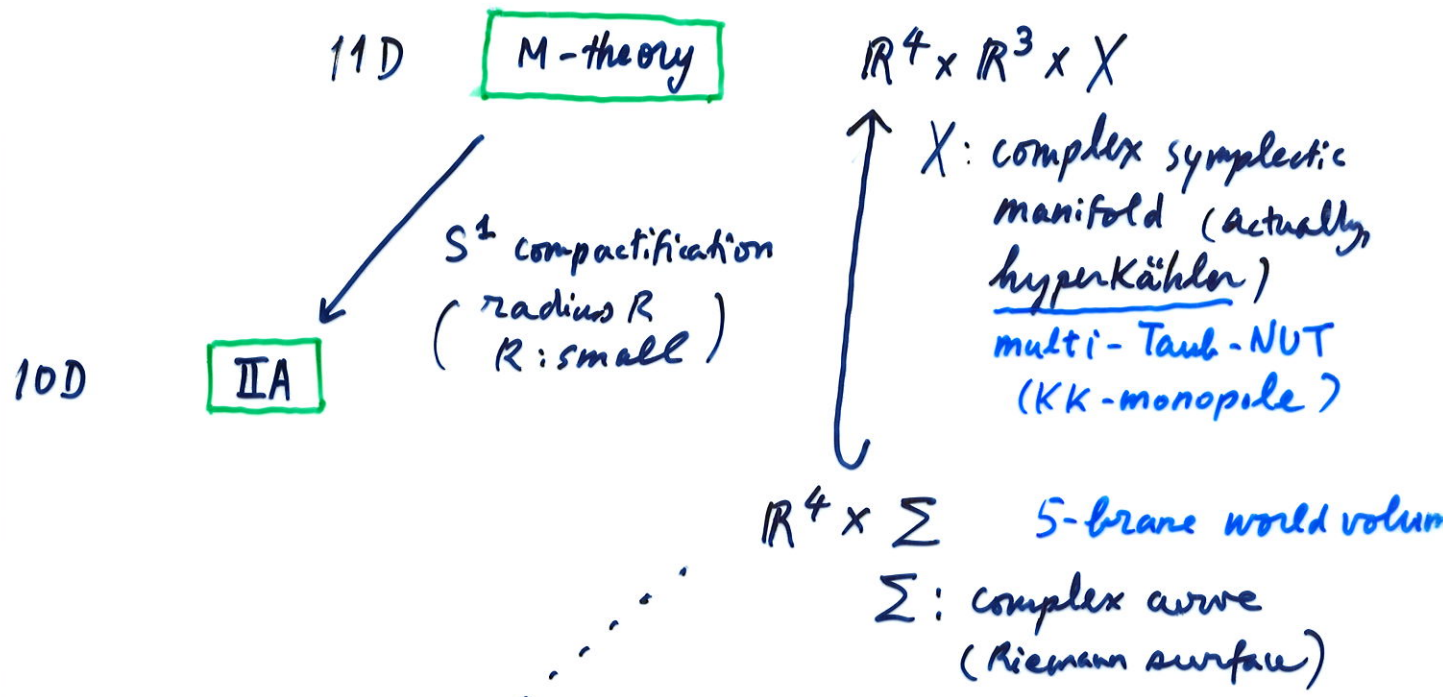 11D M-theory ℝ⁴ × ℝ³ × X
X: complex symplectic
manifold (actually,
hyperKähler)
multi-Taub-NUT
(KK-monopole)
S¹ compactification
( radius R
R: small )
10D IIA
ℝ⁴ × Σ 5-brane world volum
Σ: complex curve
(Riemann surface)